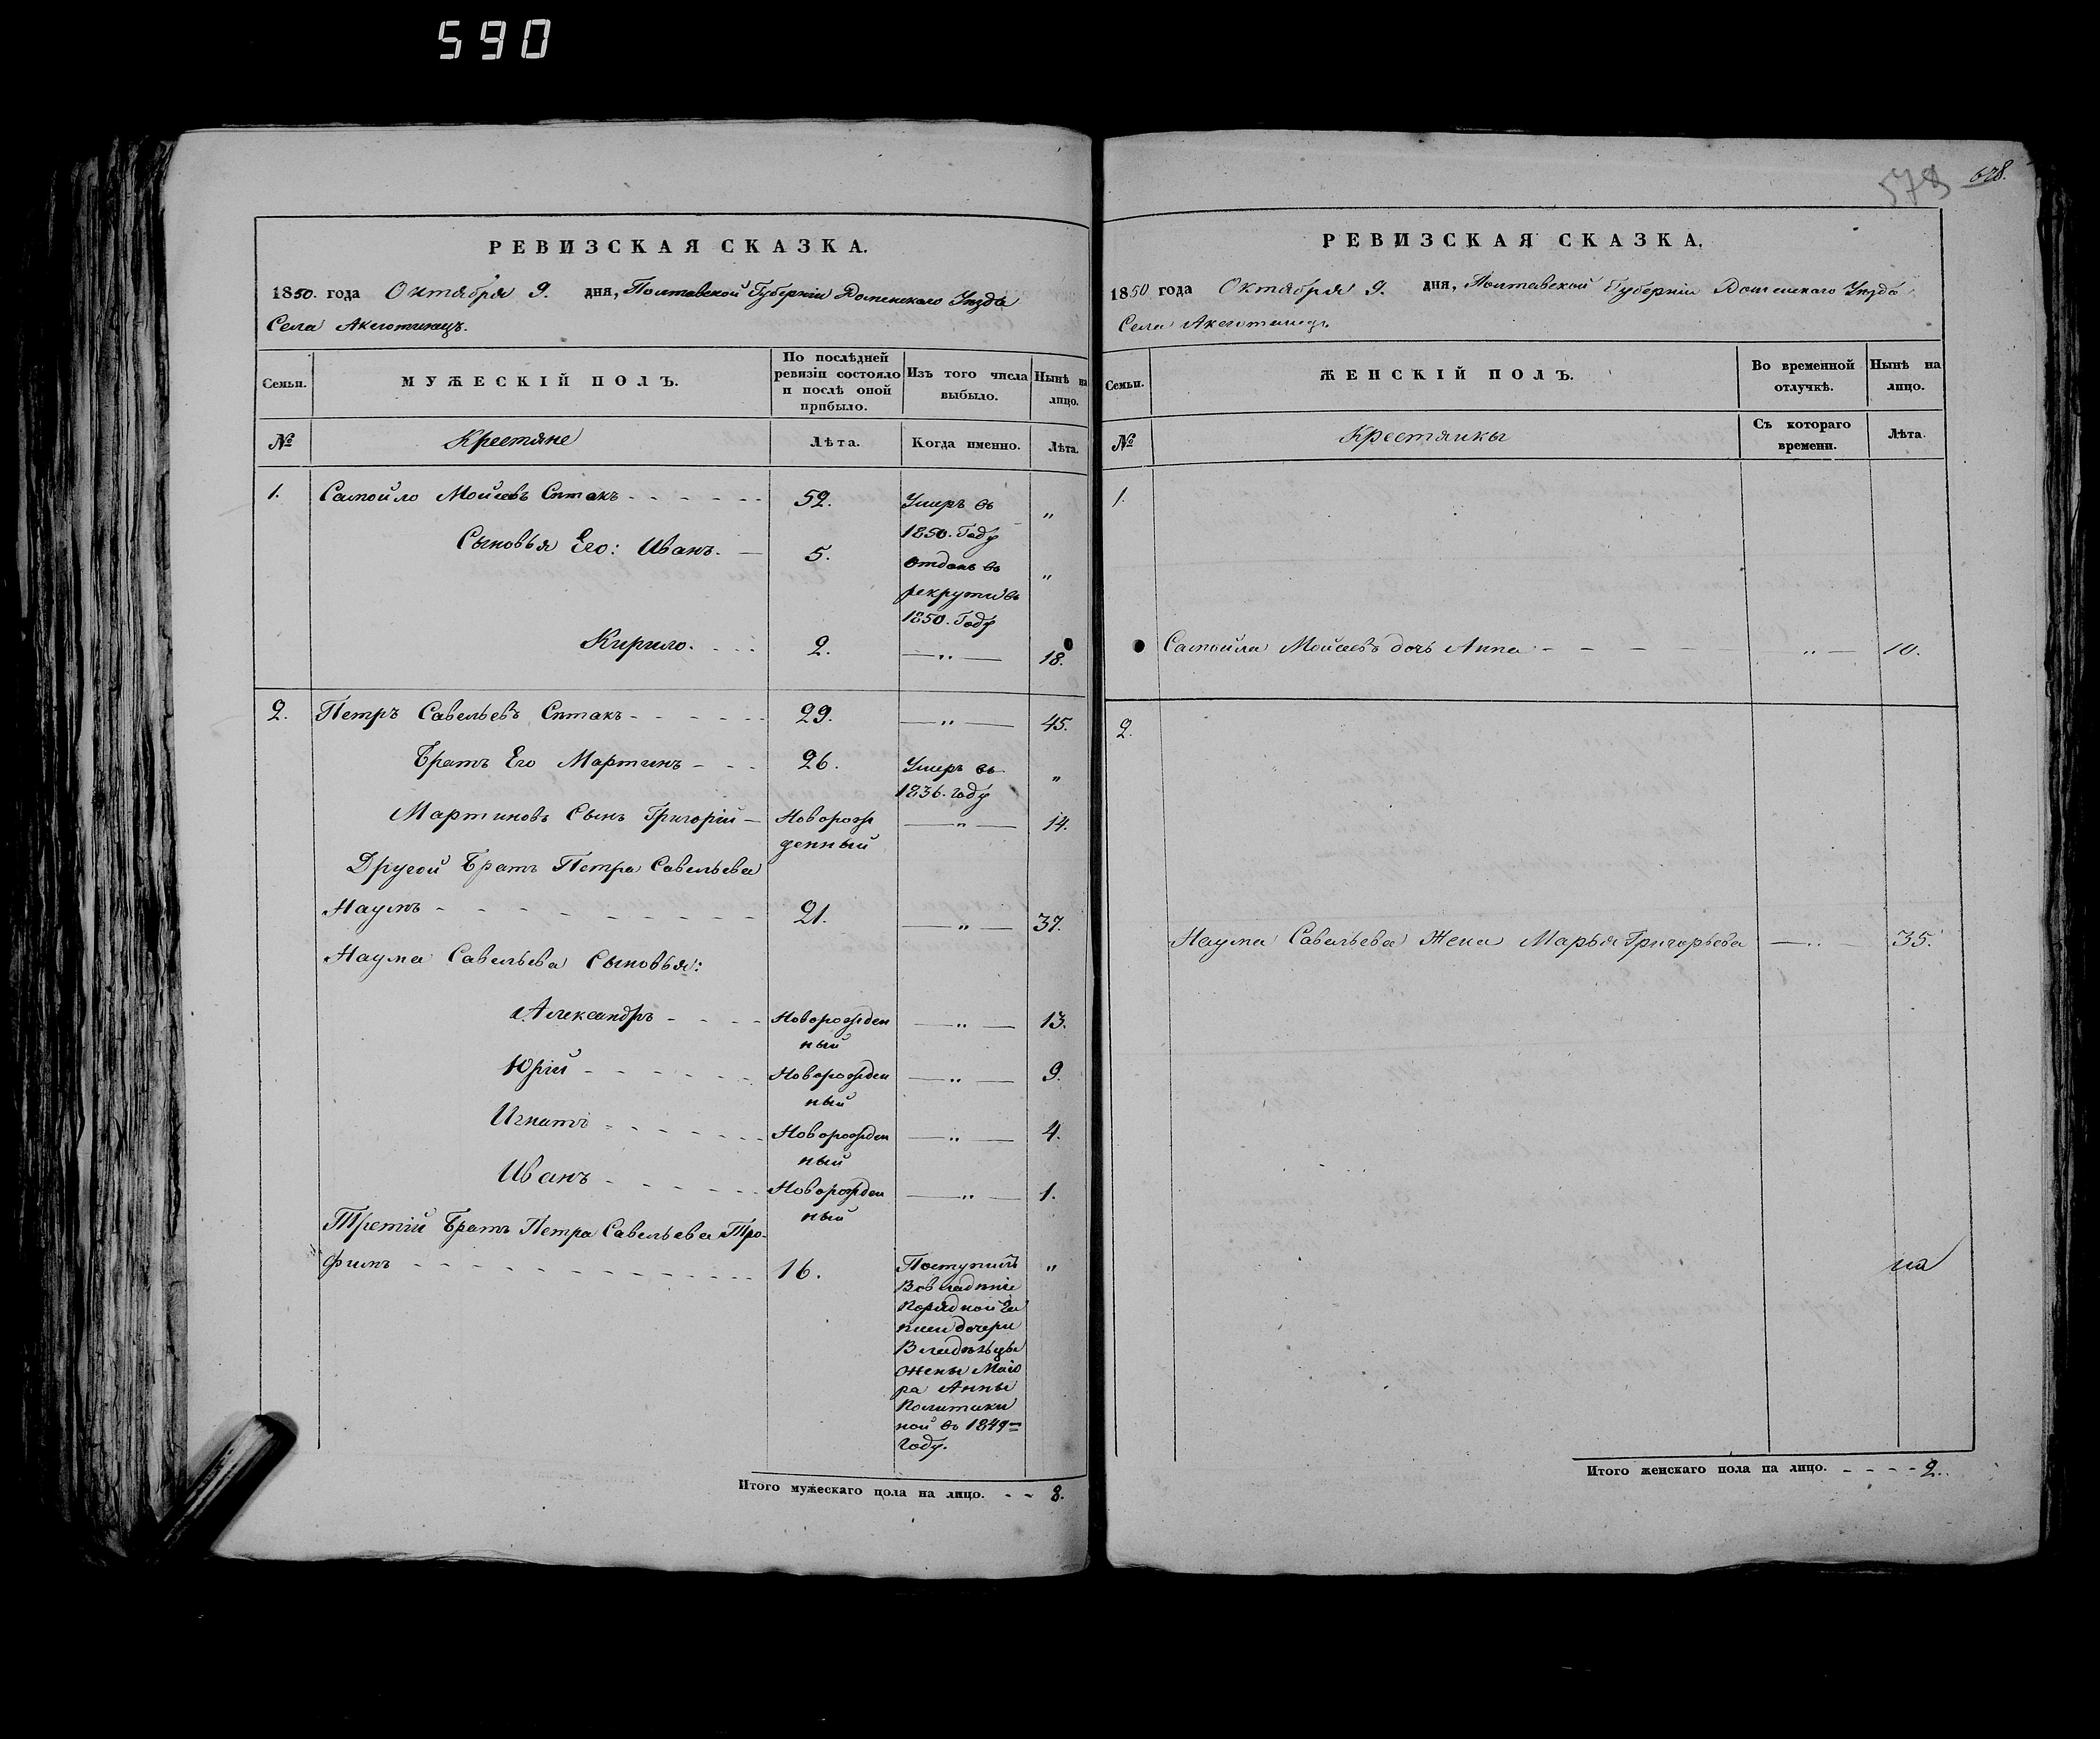 590
РЕВИЗСКАЯ СКАЗКА.
1850. года Октября 9. дня, Полтавской Губерніи Роменскаго Уезда
Села Аксютинецъ.
Семьи.
МУЖЕСКІЙ ПОЛЪ.
По послѣдней
ревизіи состояло
и послѣ оной
прибыло.
Изъ того числа
выбыло.
Нынѣ на
лицо.
№
Крестяне
Лѣта.
Когда именно.
Лѣта.
1. Самойло Мойсеевъ Ситакъ - - - - - - 52. Умеръ въ „
1850. Году
Сыновья Его: Иванъ. — 5. отданъ въ „
рекруты въ
1850. Году
Кирило. - - - 2. —„— 18.
2. Петръ Савельевъ Ситакъ - - - - - - 29. —„— 45.
Братъ Его Мартинъ - - - 26. Умеръ въ „
1836. году
Мартиновъ Сынъ Григорій — Новорож —„— 14.
денный
Другой Братъ Петра Савельева
Наумъ - - - - - - - - - 21. —„— 37.
Наума Савельева Сыновья:
Александръ - - - - Новорожден —„— 13.
ный
Юрій - - - - - - Новорожден —„— 9.
ный
Игнатъ - - - - - - Новорожден —„— 4.
ный
Иванъ - - - - - Новорожден —„— 1.
ный
Третій Братъ Петра Савельева Тро-
фимъ - - - - - - - - - - - - 16. Поступилъ „
Во владѣніе
дочери
Владѣльцы
жены Маіо
ра Анны
Политики
ной въ 1849=
году.
Итого мужескаго пола на лицо. - - 8.
578 628.
РЕВИЗСКАЯ СКАЗКА.
1850 года Октября 9. дня, Полтавской Губерніи Роменскаго Уезда
Села Аксютинецъ
Семьи.
ЖЕНСКІЙ ПОЛЪ.
Во временной
отлучкѣ.
Нынѣ на
лицо.
№
Крестянки
Съ котораго
времени.
Лѣта.
1.
Самойла Мойсеевъ дочь Анна - - - - „— 10.
2.
Наума Савельева Жена Марья Григорьева —„— 35.
Итого женскаго пола на лицо. - - - - 2.